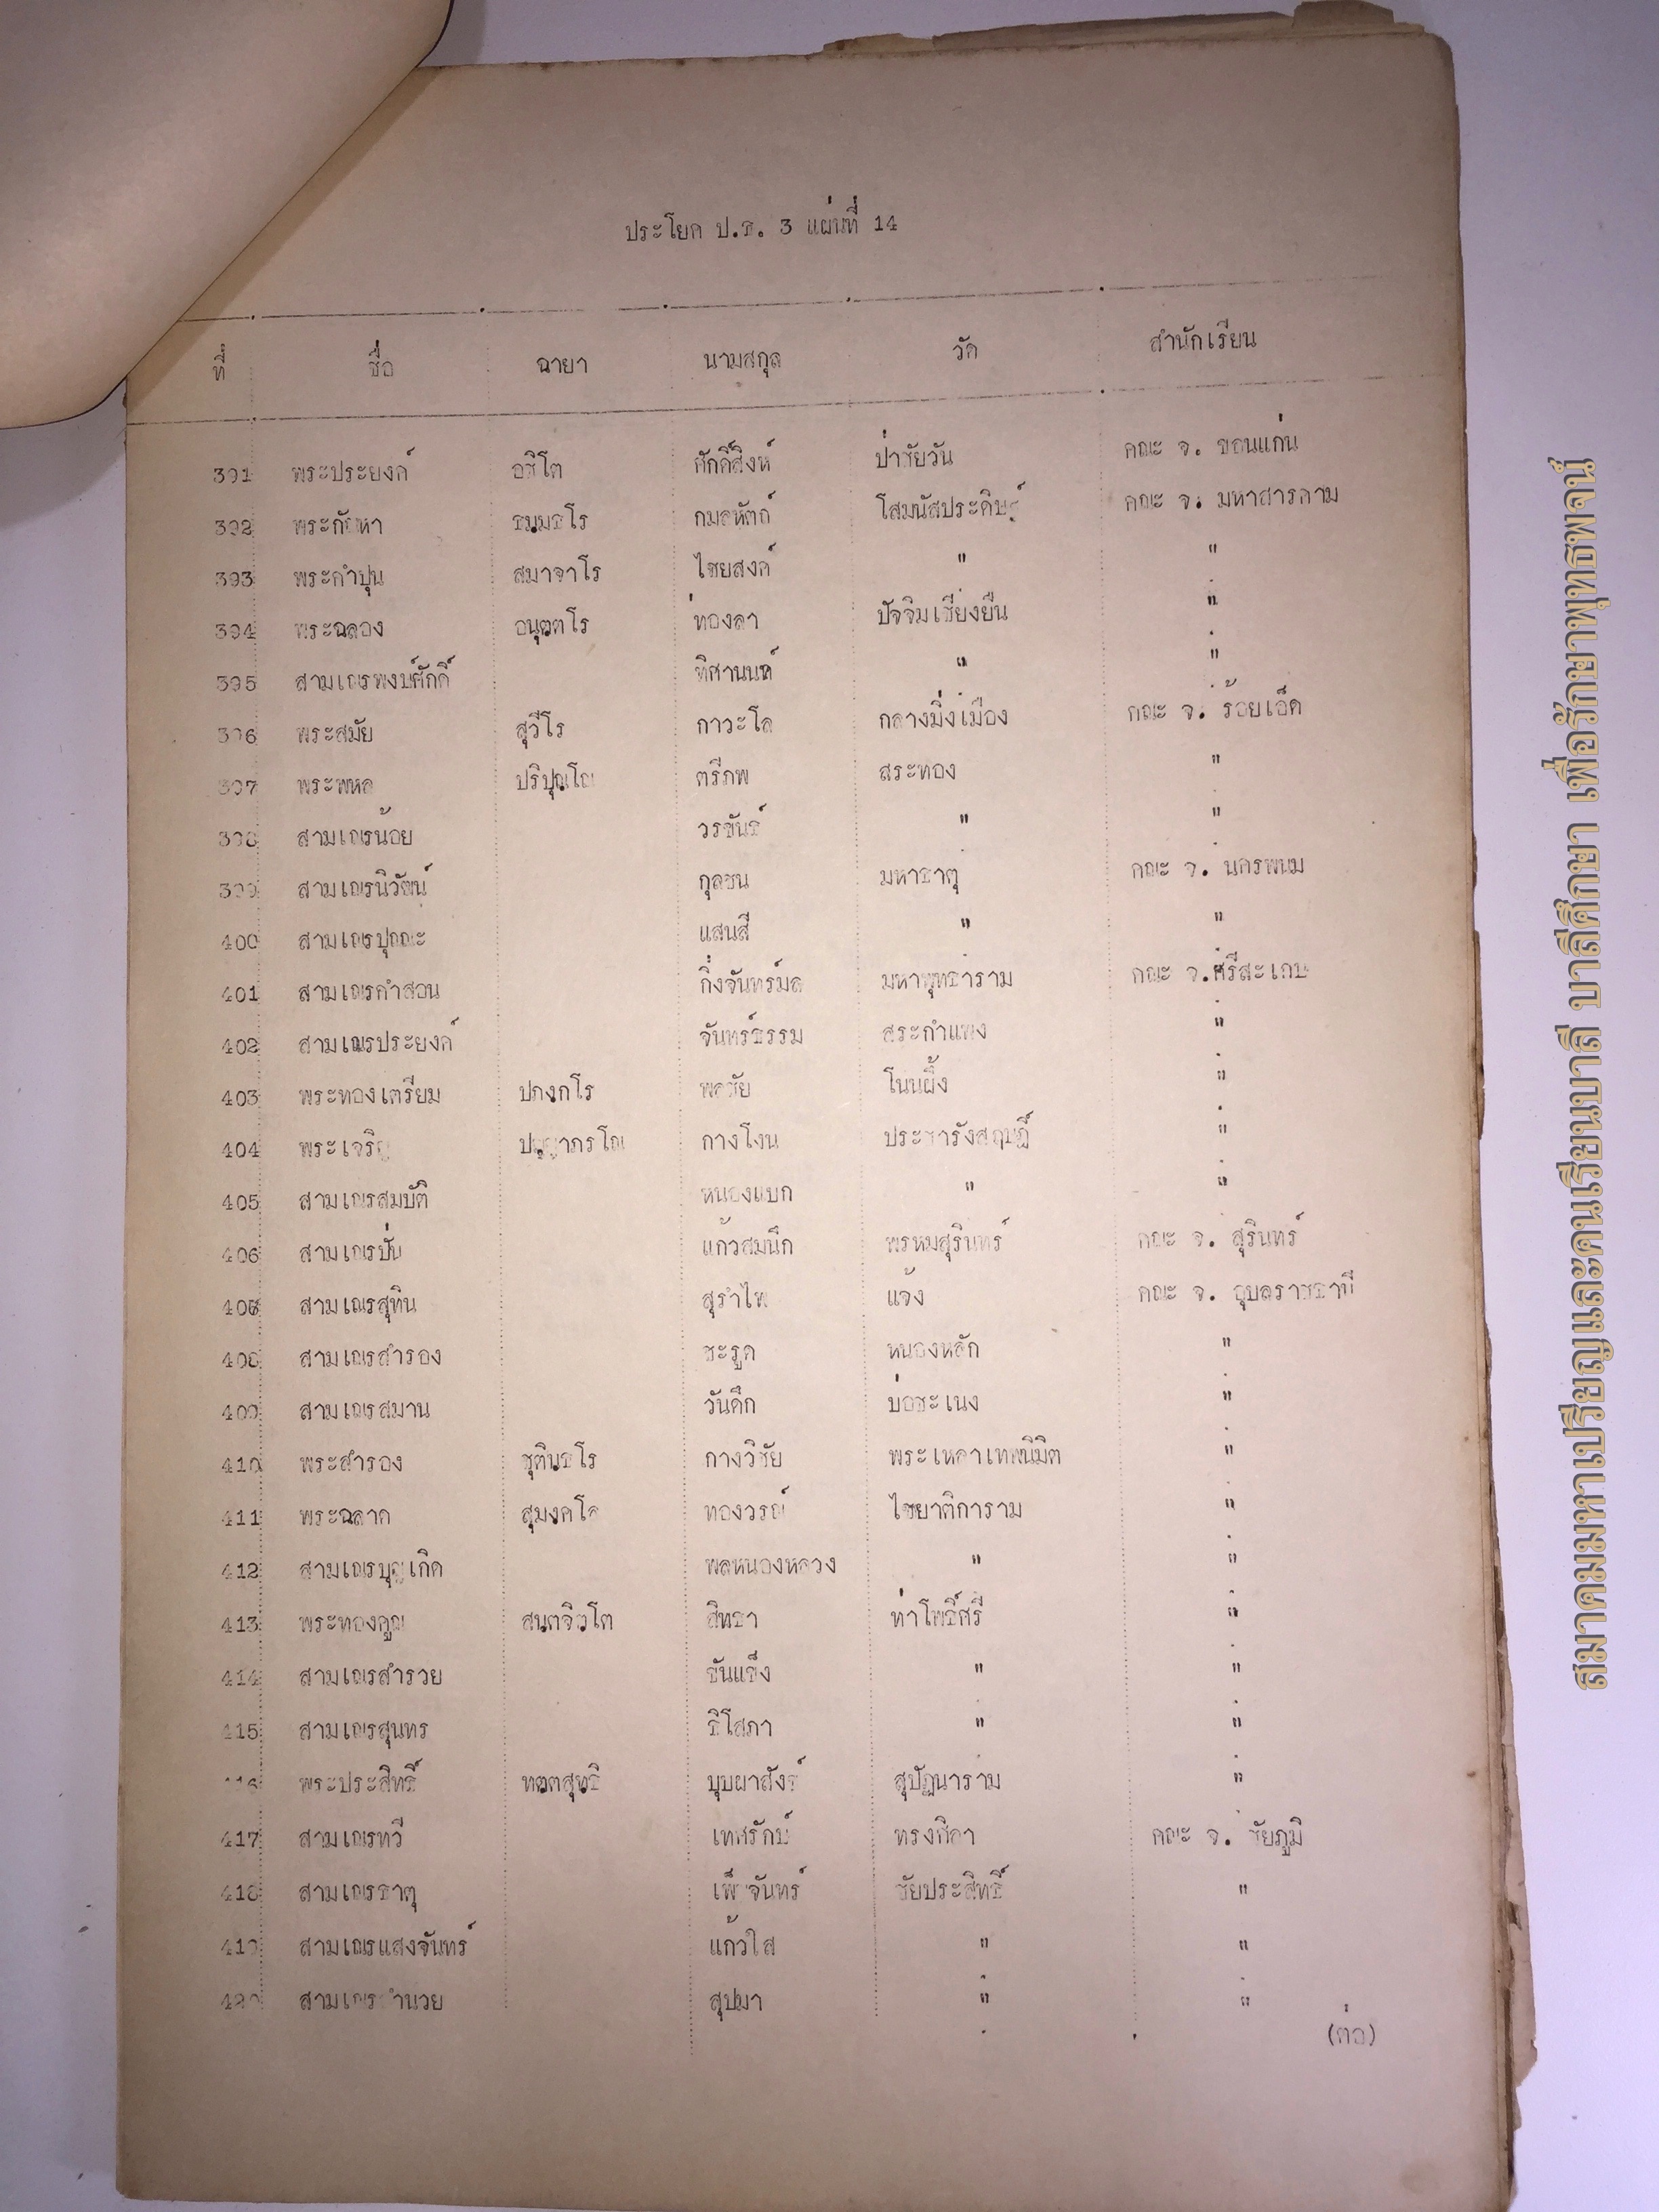 ประโยค ป.ธ. 3 แผ่นที่ 14
ที่ ชื่อ ฉายา นามสกุล วัด สำนักเรียน
391 พระประยงค์ อสิโต ศักดิ์สิงห์ ป่าชัยวัน คณะ จ. ขอนแก่น
392 พระกัณหา ธมฺมธโร กมลหัตถ์ โสมนัสประดิษฐ์ คณะ จ. มหาสารคาม
393 พระคำปุน สมาจาโร ไชยสงค์ " "
394 พระฉลอง อนุตฺตโร ท่องลา ปัจจิมเชียงยืน "
395 สามเณรพงษ์ศักดิ์ ทิศานนท์ " "
396 พระสมัย สุวีโร กาวะโล กลางมิ่งเมือง คณะ จ. ร้อยเอ็ด
397 พระพหล ปริปุณฺโณ ตรีภพ สระทอง "
398 สามเณรน้อย วรขันธ์ " "
399 สามเณรนิวัฒน์ กุลชน มหาธาตุ คณะ จ. นครพนม
400 สามเณรปุณณะ แสนสี " "
401 สามเณรคำสอน กิ่งจันทร์มล มหาพุทธาราม คณะ จ.ศรีสะเกษ
402 สามเณรประยงค์ จันทร์ธรรม สระกำแพง "
403 พระทองเตรียม ปภงฺกโร พลชัย โนนผึ้ง "
404 พระเจริญ ปญฺญาภรโณ กางโงน ประชารังสฤษฎิ์ "
405 สามเณรสมบัติ หนองแบก " "
406 สามเณรปั่น แก้วสมนึก พรหมสุรินทร์ คณะ จ. สุรินทร์
407 สามเณรสุทิน สุรำไพ แจ้ง คณะ จ. อุบลราชธานี
408 สามเณรสำรอง ชะรูด หนองหลัก "
409 สามเณรสมาน วันดึก บ่อชะเนง "
410 พระสำรอง ชุตินฺธโร กางวิชัย พระเหลาเทพนิมิต "
411 พระฉลาด สุมงฺคโล ทองวรณ์ ไชยาติการาม "
412 สามเณรบุญเกิด พลหนองหลวง " "
413 พระทองคูณ สนฺตจิตฺโต สิทธา ท่าโพธิ์ศรี "
414 สามเณรสำรวย ขันแข็ง " "
415 สามเณรสุนทร ธิโสภา " "
416 พระประสิทธิ์ ทตฺตสุทฺธิ บุบผาสังข์ สุปัฏนาราม "
417 สามเณรทวี เทศรักษ์ ทรงศิลา คณะ จ. ชัยภูมิ
418 สามเณรธาตุ เพ็ จันทร์ ชัยประสิทธิ์ "
419 สามเณรแสงจันทร์ แก้วใส " "
420 สามเณร สุปมา " "
(ต่อ)
สมาคมมหาเปรียญและคนเรียนบาลี บาลีศึกษา เพื่อรักษาพุทธพจน์